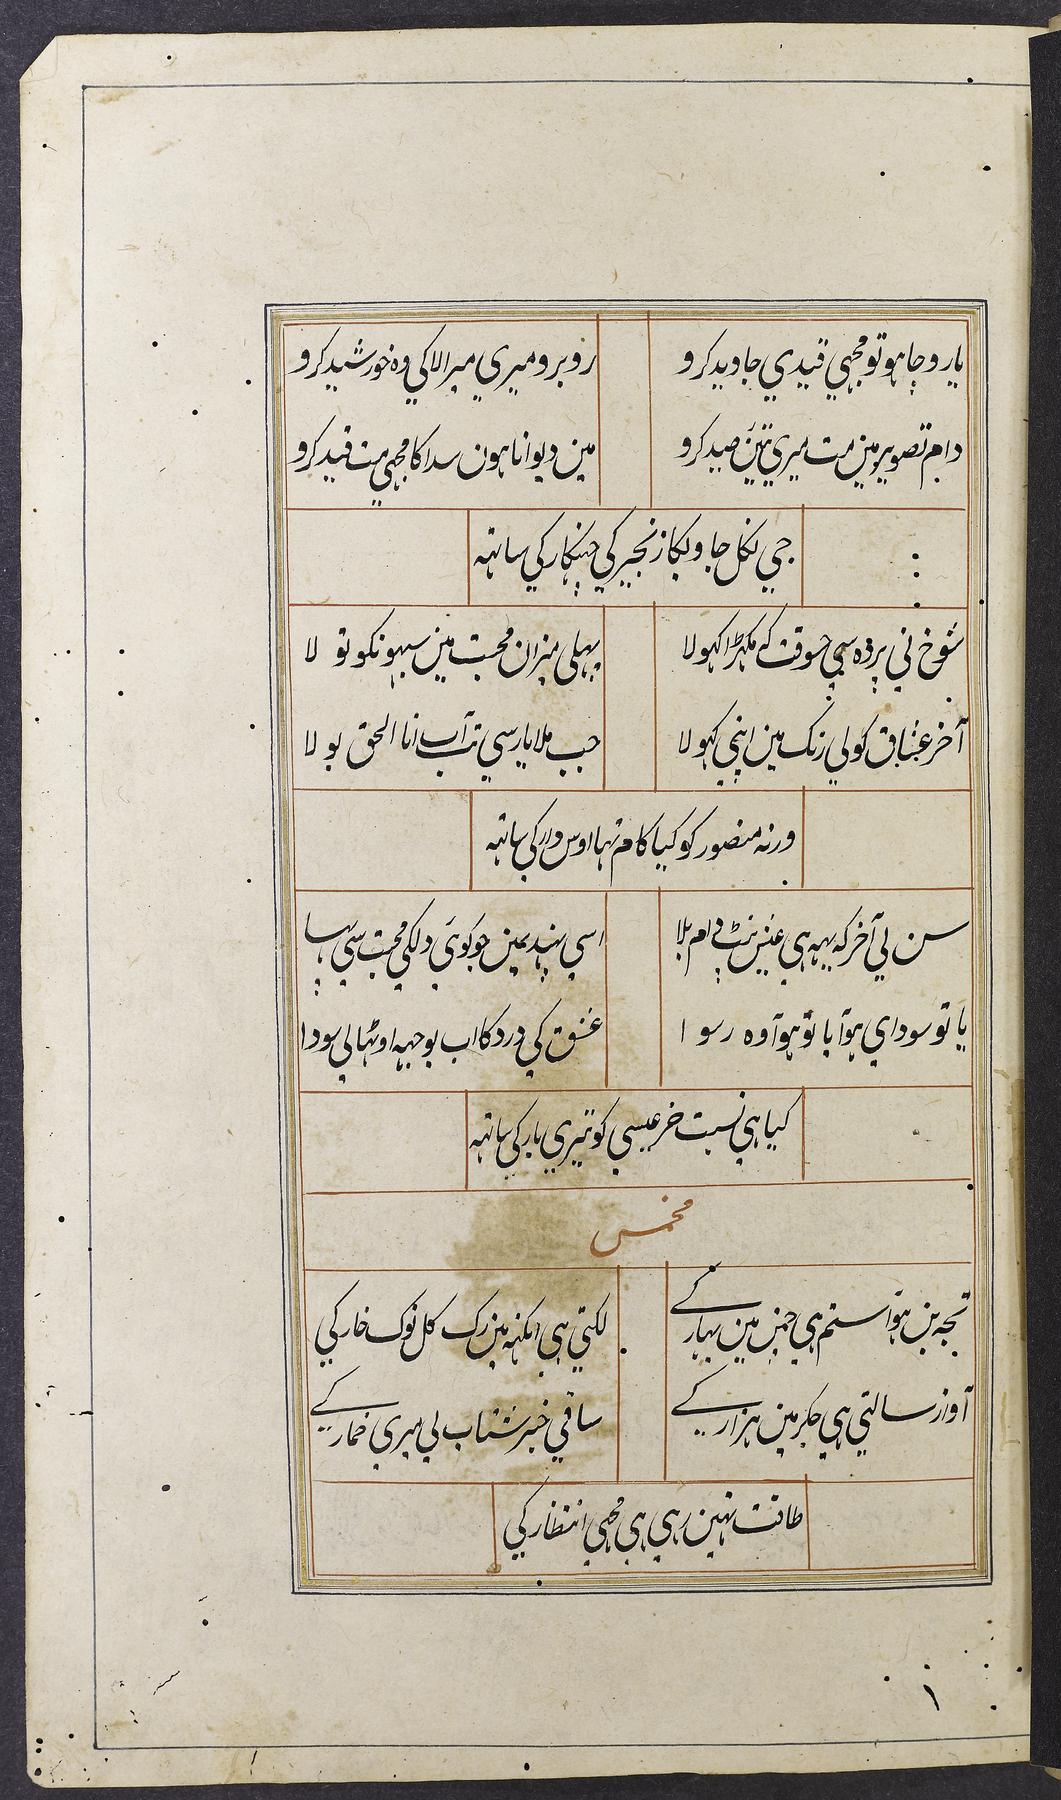 یارو چاہو تو مجہی قیدی جاوید کرو
روبرو میری میرالاکی وہ خورشید کرو
دام تصویر مین مت میری تئین صید کرو
مین دیوانا ہون سدا کا مجہی مت قید کرو
جی نکل جاویکا زنجیر کی جہنکار کی ساتہہ
شوخ نی پردہ سی جسوقت کے مکہڑا کہولا
پہلی میزان محبت مین سبہونکو تو لا
آخر عشاق کو لی رنک مین اپنی کہولا
جب ملا یار سی تب آپ انا الحق بو لا
ورنہ منصور کو کیا کام تہا اوس دار کی ساتہہ
سن لی آخر کہ یہہ ہی عین نپٹ دام بلا
اسی پہند یمین جو کوئی دلکی محبت سی پہسا
یا تو سودای ہوآ یا تو ہوآ وہ رسوا
عشق کی درد کا اب بوجہہ اوٹہا لی سودا
کیا ہی نسبت خر عیسی کو تیری بار کی ساتہہ
مخمس
تجہ بن ہوآ ستم ہی چمن مین بہار کے
لکتی ہی انکہہ مین رک کل نوک خار کی
آواز سالتی ہی جکر مین ہزار کے
ساقی خبر شتاب لی میری خمار کے
طاقت نہین رہی ہی مجہی انتظار کی
۱